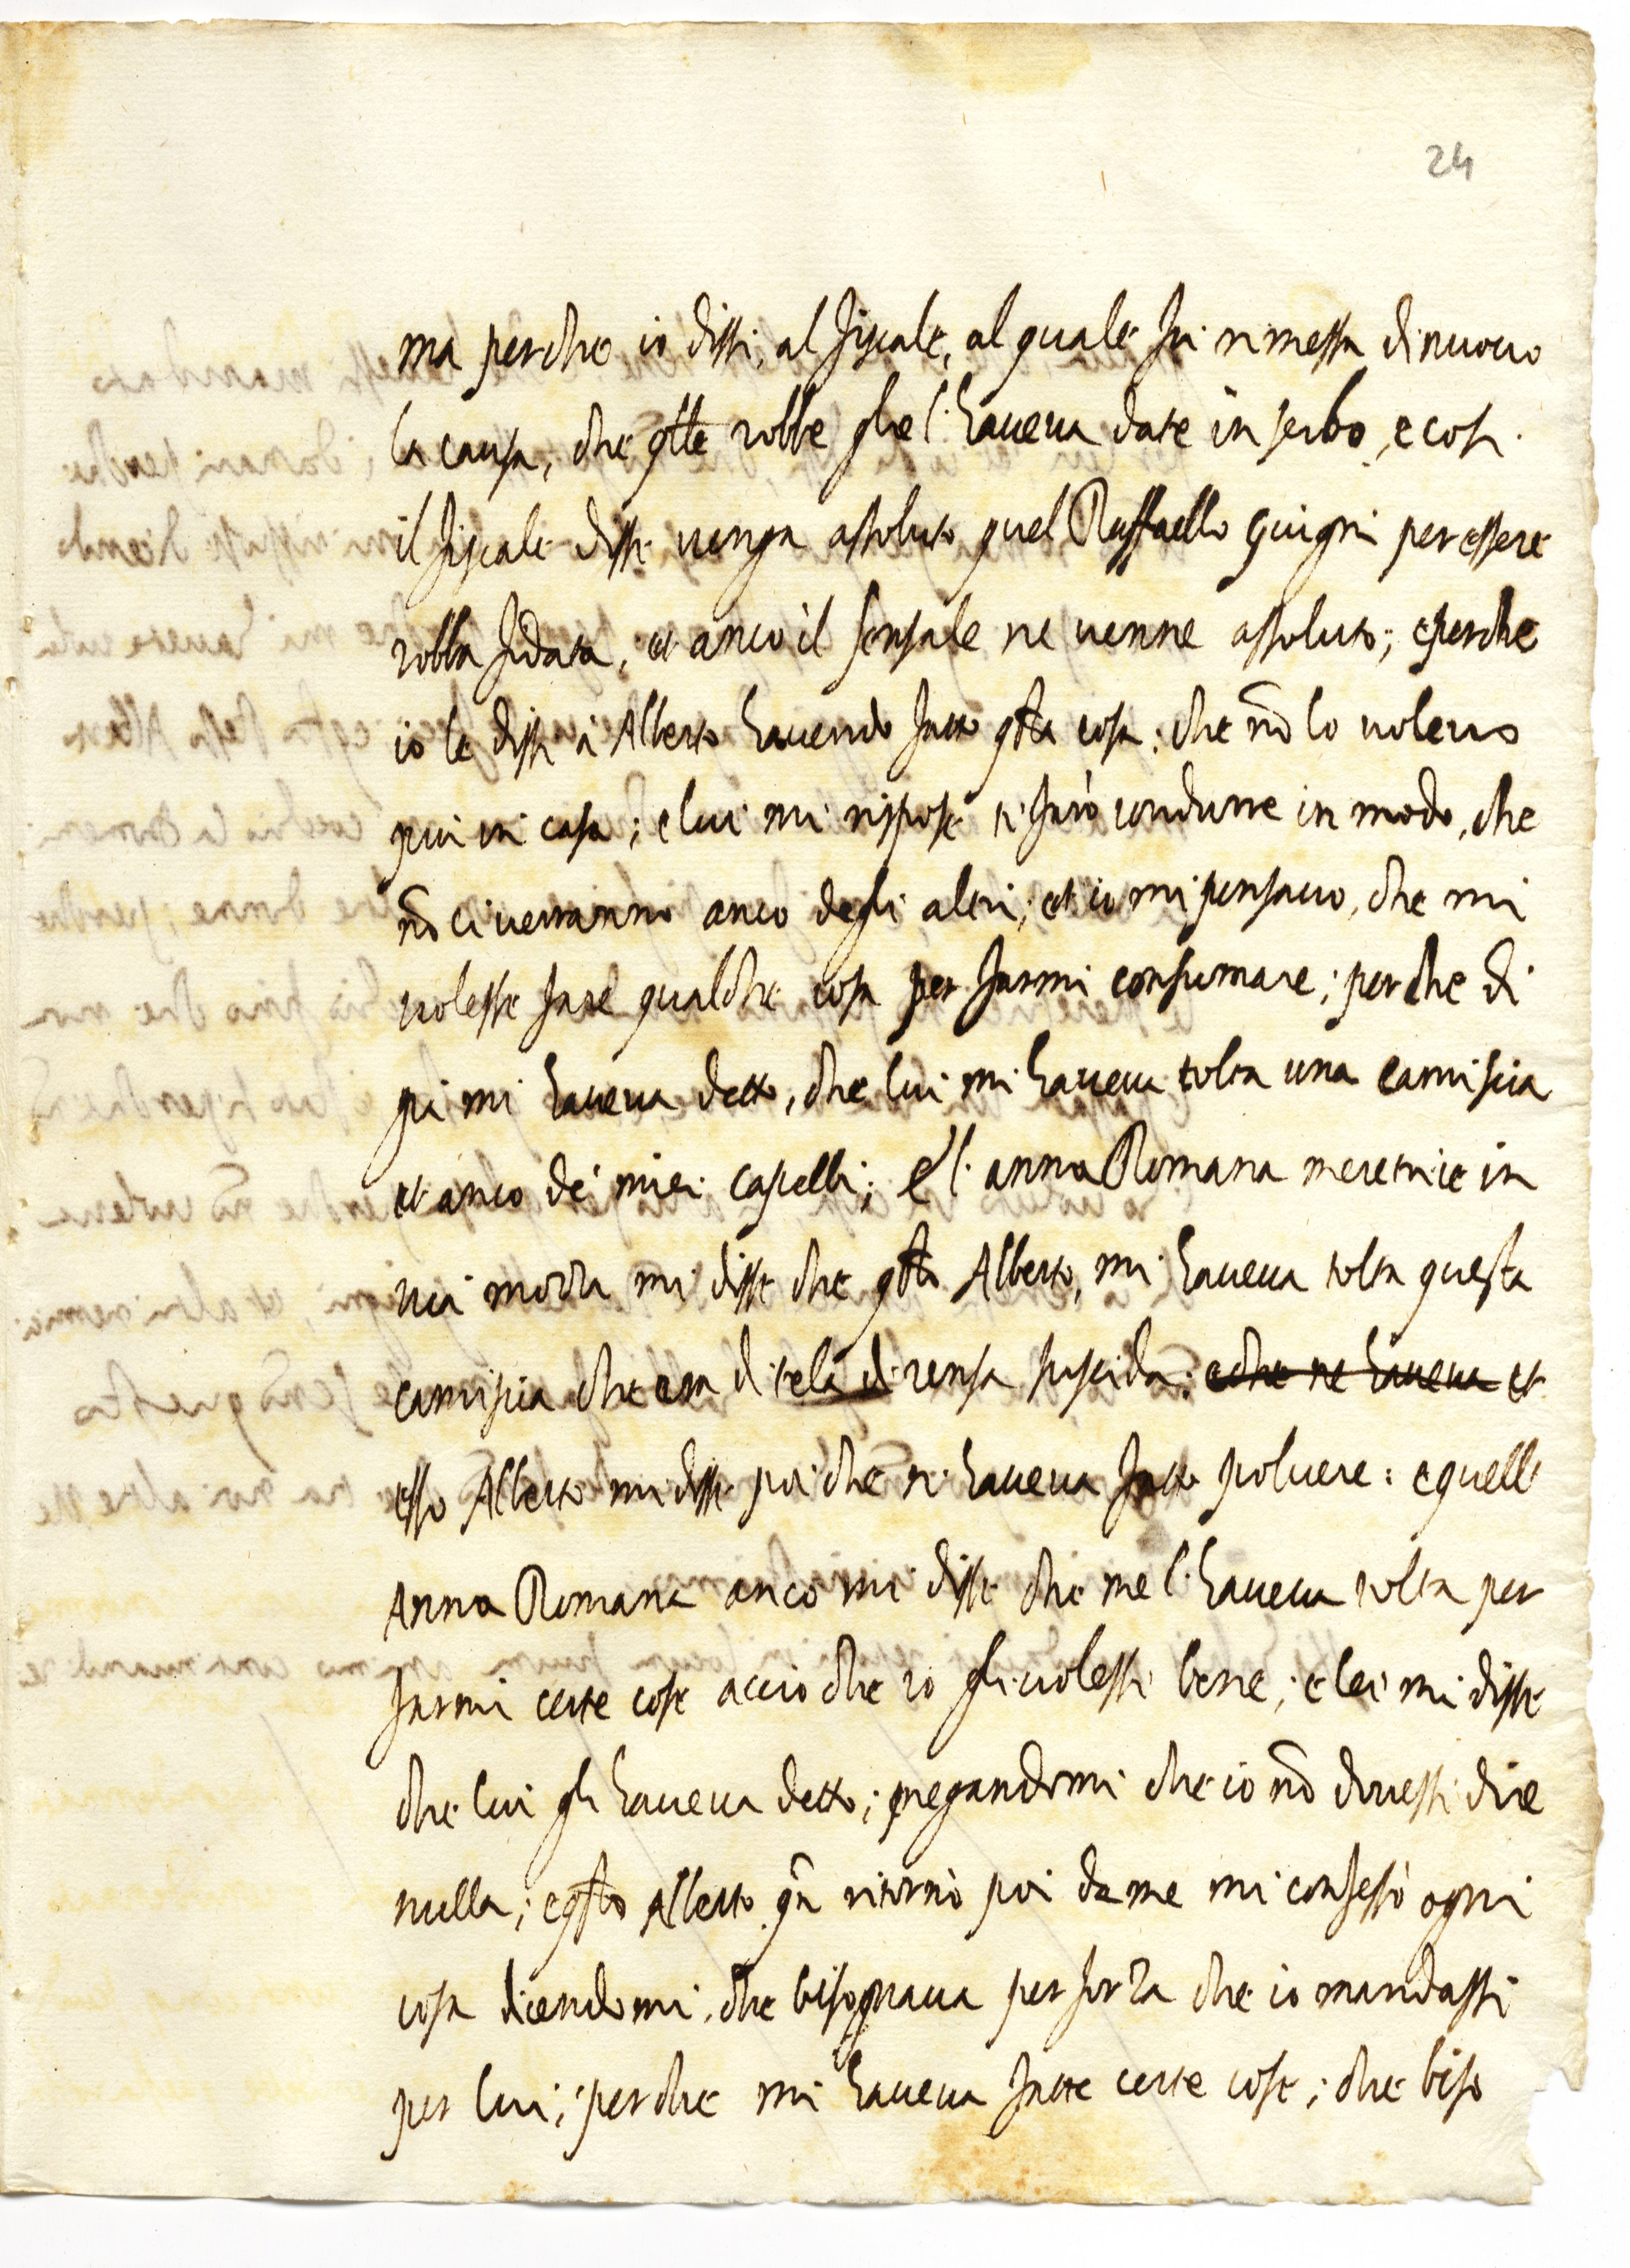 24
ma perche io dissi, al fiscale, al quale fu rimessa di nuouo
la causa, che q.ste robbe glie l'haueua date in serbo, e così
il fiscale disse uenga assoluto quel Raffaello Guigni per essere
robba fidata, et anco il sensale ne uenne assoluto; e perche
io le dissi à Alberto hauendo fatto q.sta cosa: che nō lo uoleuo
piu in casa; e lui mi rispose ti farò condurre in modo, che
nō ci uerranno anco degli altri; et io mi pensauo, che mi
uolesse fare qualche cosa per farmi consumare; perche di
gia mi haueua detto, che lui mi haueua tolta una camiscia
et anco de' miei capelli; e l'anna Romana meretrice in
uia mozza mi disse che q.sto Alberto, mi haueua tolta questa
camiscia che era di tela di rensa sussida: e che ne haueua et
esso Alberto mi disse poi che ne haueua fatto poluere: e quell
Anna Romana anco mi disse che me l'haueua tolta per
farmi certe cose accio che io gli uolessi bene; e lei mi disse
che lui gli haueua detto; pregandomi che io nō douessi dire
nulla; e q.sto Alberto qn̄ ritornò poi da me mi confessò ogni
cosa dicendomi, che bisognaua per forza che io mandassi
per lui; perche mi haueua fatte certe cose; che biso